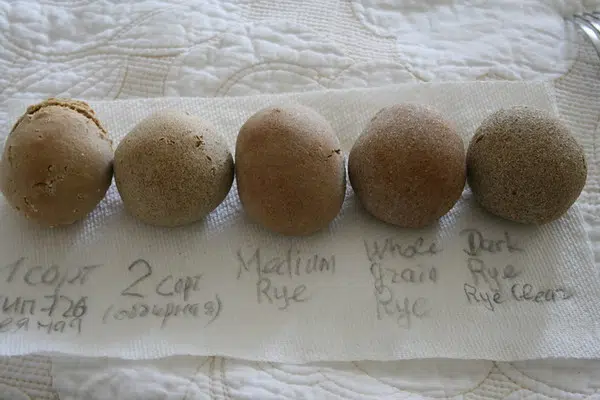 1 сорт
ип-726
еяная
2 сорт
(обдирная)
Medium
Rye
Whole
Grain
Rye
Dark
Rye
Rye Clear